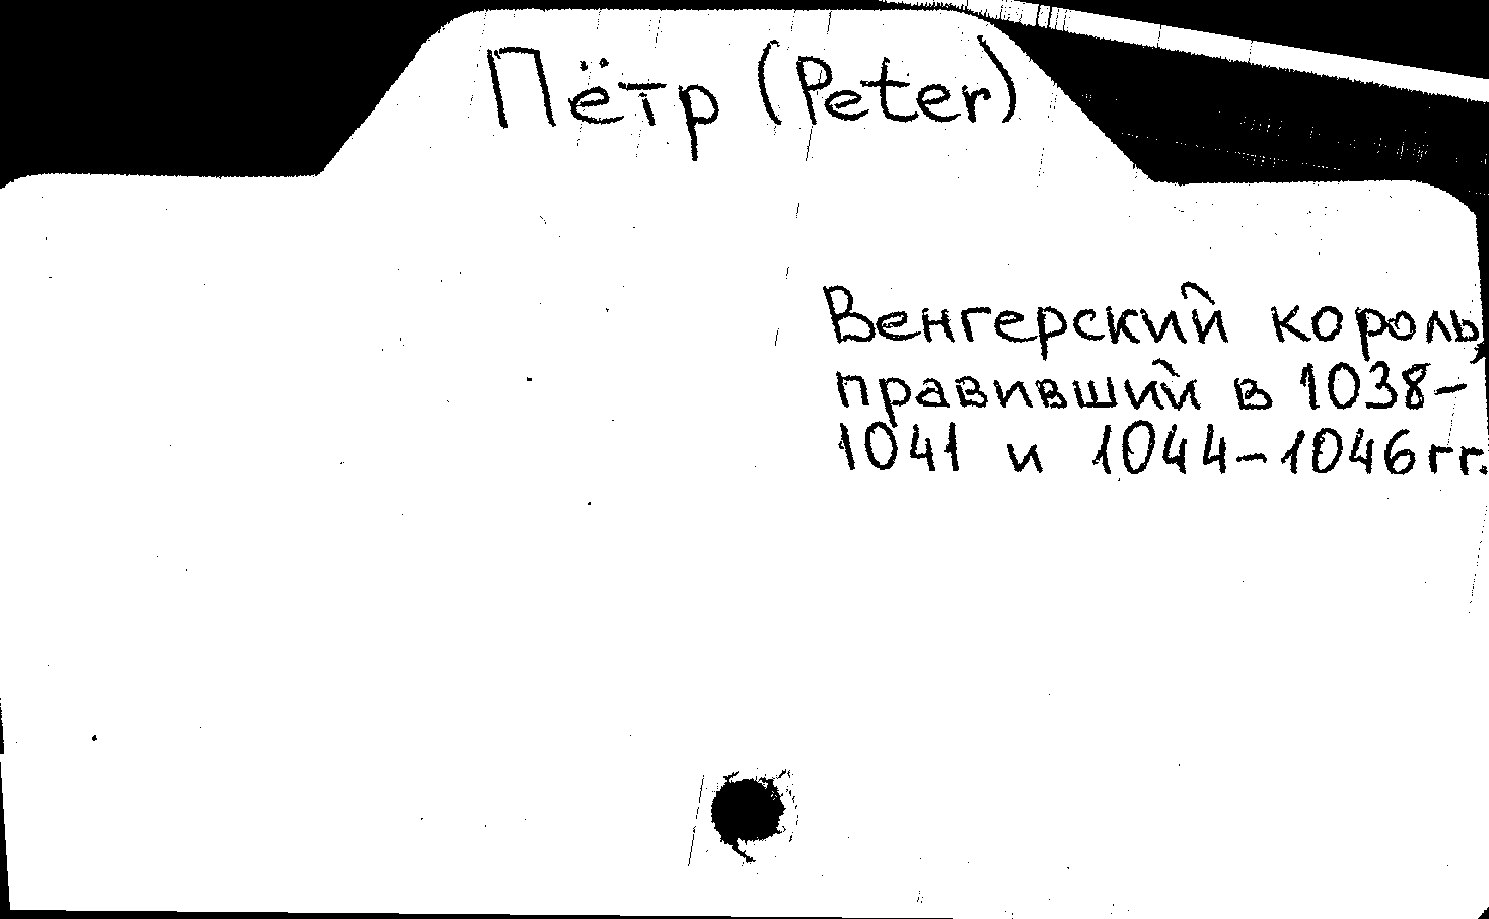 Пётр (Peter)
Венгерский король,
правивший в 1038-
1041 и 1044-1046гг.